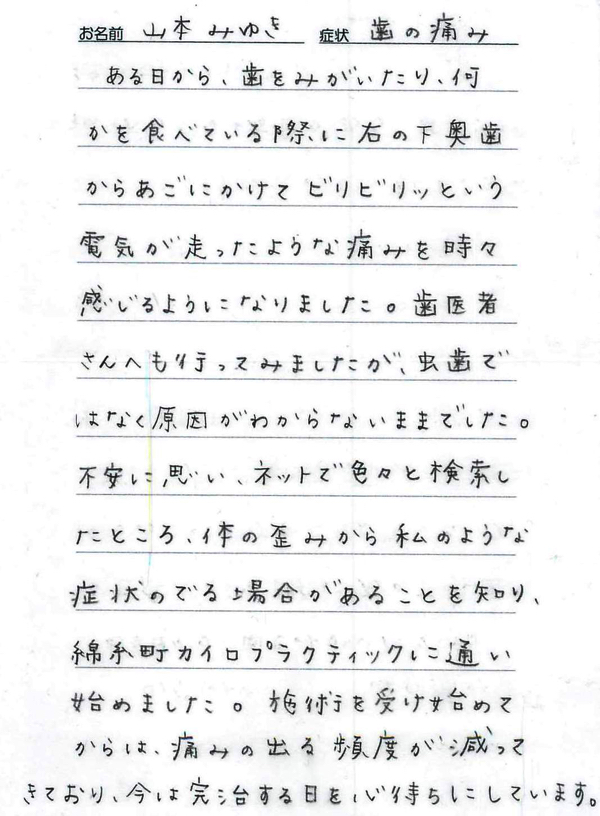 お名前 山本みゆき 症状 歯の痛み
ある日から、歯をみがいたり、何
かを食べている際に右の下奥歯
からあごにかけてビリビリッという
電気が走ったような痛みを時々
感じるようになりました。歯医者
さんへも行ってみましたが、虫歯で
はなく原因がわからないままでした。
不安に思い、ネットで色々と検索し
たところ、体の歪みから私のような
症状のでる場合があることを知り、
綿糸町カイロプラクティックに通い
始めました。施術を受け始めて
からは、痛みの出る頻度が減って
きており、今は完治する日を心待ちにしています。